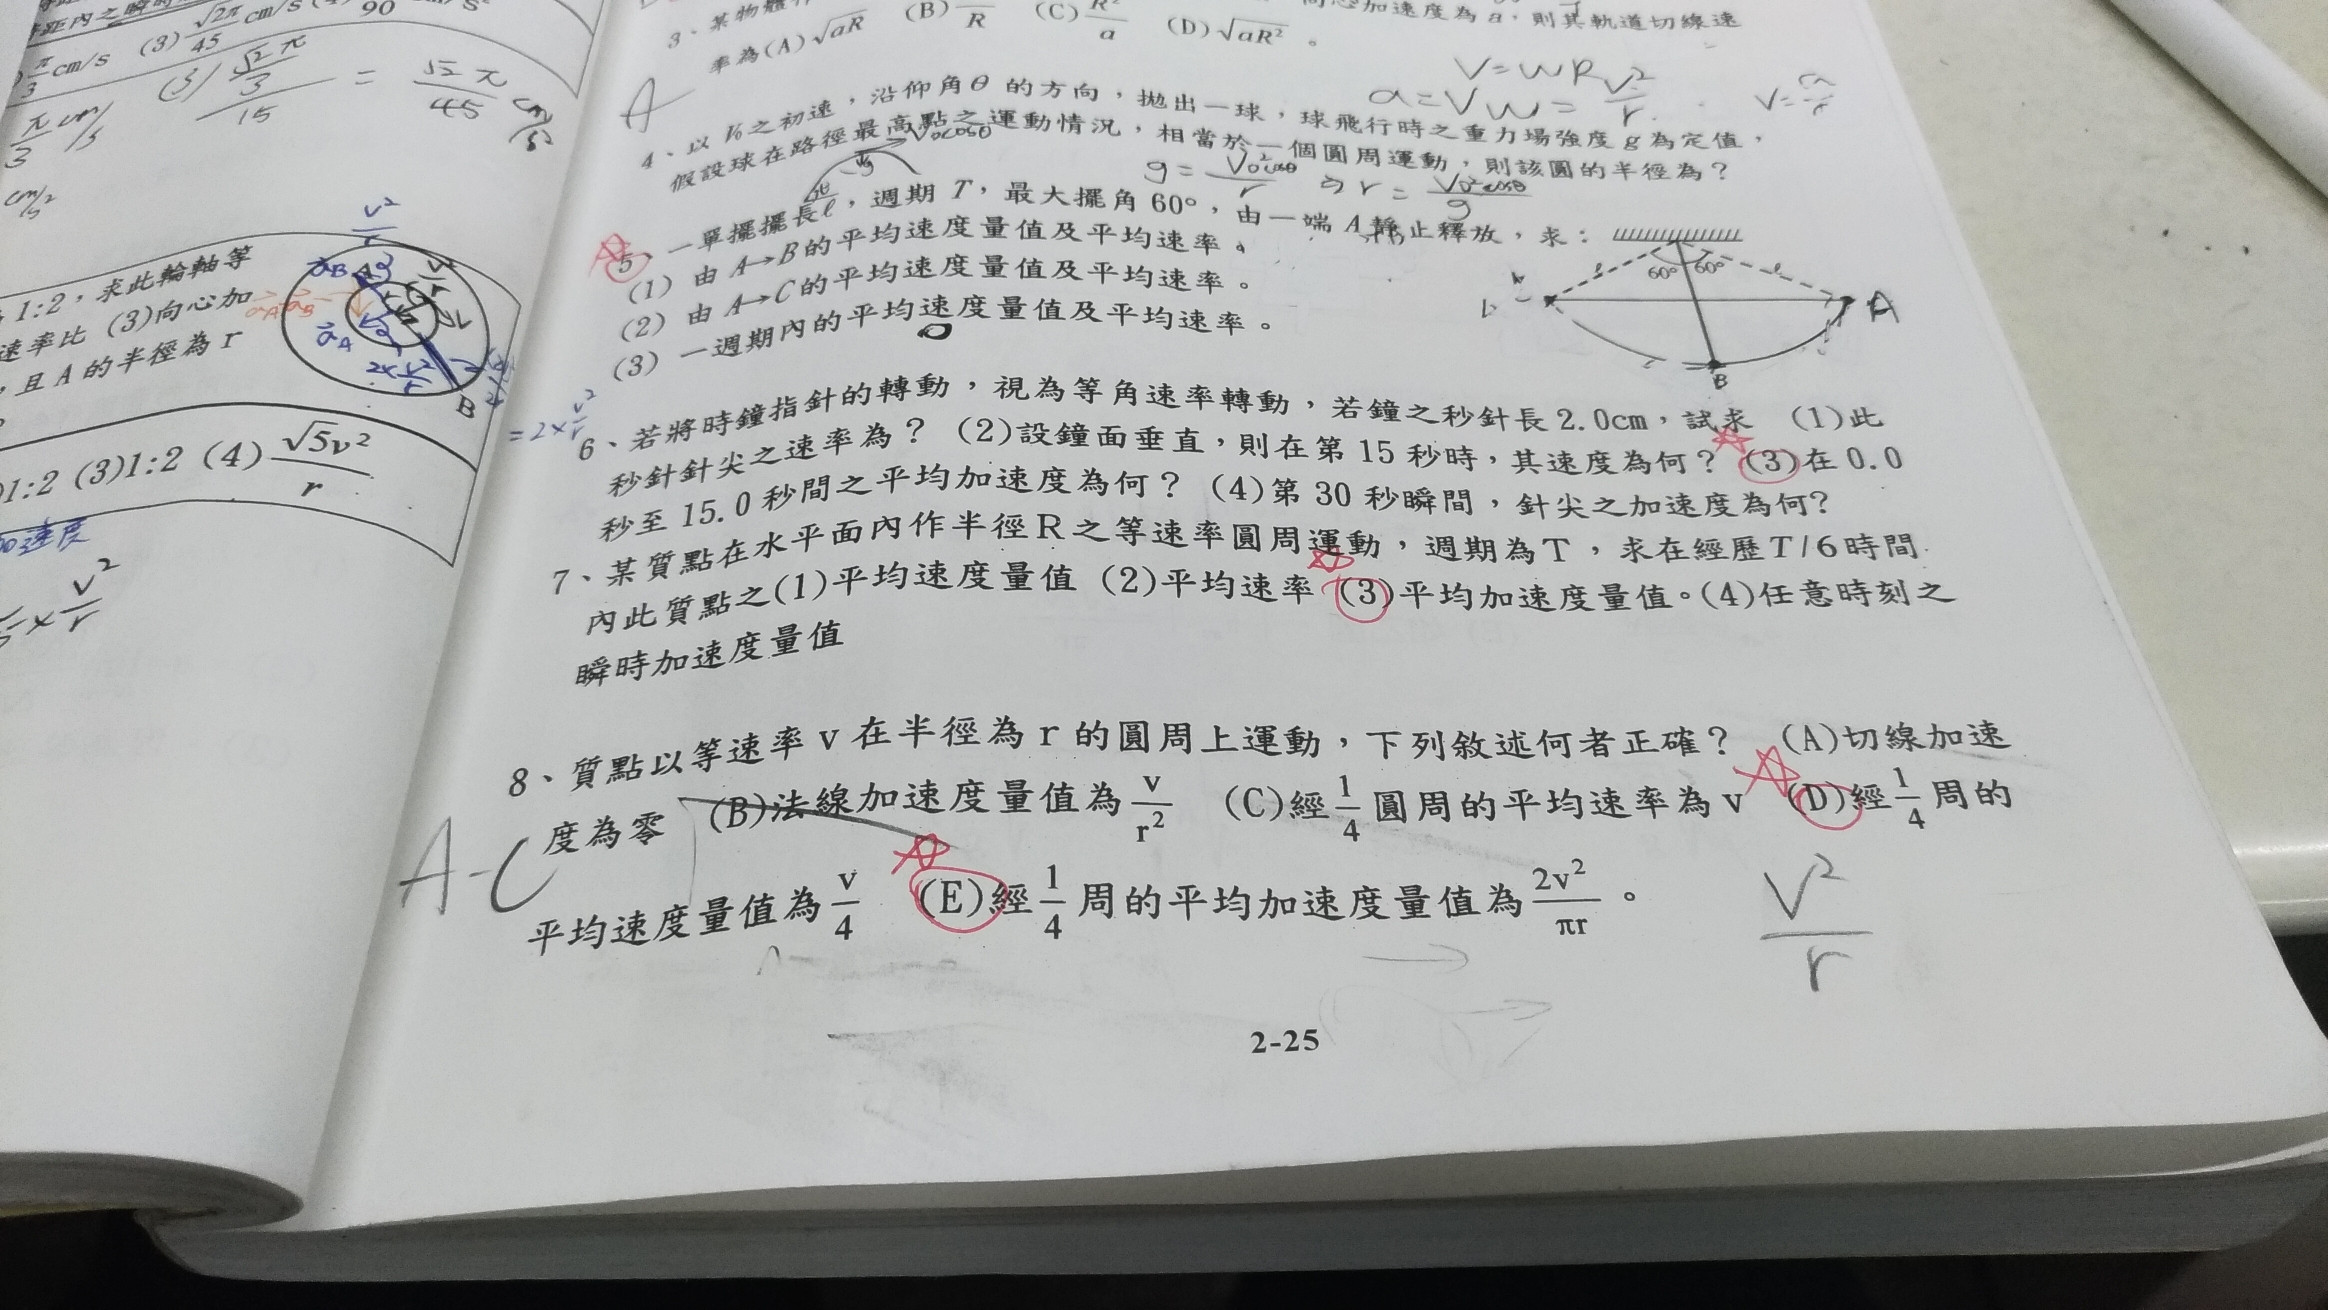 cm/s (3) √2π/45 cm/s
π/3 cm/s
(3) √2π/3 / 15 = √2π/45 cm/s²
1:2，求此輪軸等
速率比 (3)向心加
，且 A 的半徑為 r
1:2 (3)1:2 (4) √5v²/r
加速度
= 2×v²/r
3、某物體
加速度為 a，則其軌道切線速
率為(A)√aR (B) (C) (D)√aR² 。
A
V=WR
a=VW=V²/r
4、以 V₀之初速，沿仰角θ 的方向，拋出一球，球飛行時之重力場強度 g 為定值，
假設球在路徑最高點之運動情況，相當於一個圓周運動，則該圓的半徑為？
V₀cosθ
g = V₀²cosθ/r ⇒ r = V₀²cosθ/g
5、一單擺擺長ℓ，週期 T，最大擺角 60°，由一端 A 靜止釋放，求：
(1) 由 A→B的平均速度量值及平均速率。
(2) 由 A→C的平均速度量值及平均速率。
(3) 一週期內的平均速度量值及平均速率。
60° 60°
A
B
6、若將時鐘指針的轉動，視為等角速率轉動，若鐘之秒針長 2.0cm，試求 (1)此
秒針針尖之速率為？ (2)設鐘面垂直，則在第 15 秒時，其速度為何？ (3)在 0.0
秒至 15.0 秒間之平均加速度為何？ (4)第 30 秒瞬間，針尖之加速度為何?
7、某質點在水平面內作半徑R之等速率圓周運動，週期為T，求在經歷T/6時間
內此質點之(1)平均速度量值 (2)平均速率 (3)平均加速度量值。(4)任意時刻之
瞬時加速度量值
8、質點以等速率 v 在半徑為 r 的圓周上運動，下列敘述何者正確？ (A)切線加速
度為零 (B)法線加速度量值為 v/r² (C)經 1/4 圓周的平均速率為 v (D)經 1/4 周的
A-C
平均速度量值為 v/4 (E)經 1/4 周的平均加速度量值為 2v²/πr 。
V²/r
2-25